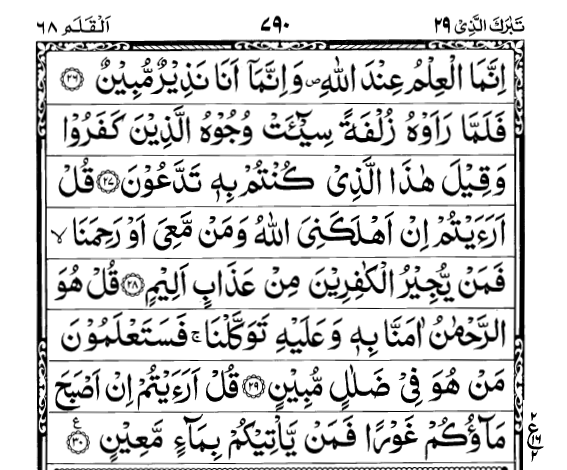 تَبٰرَكَ الَّذِىْ ٢٩ ٧٩٠ اَلْقَلَمِ ٦٨
اِنَّمَا الْعِلْمُ عِنْدَ اللّٰهِ ۖ وَاِنَّمَآ اَنَا نَذِيْرٌ مُّبِيْنٌ ﴿٢٦﴾
فَلَمَّا رَاَوْهُ زُلْفَةً سِيْٓـَٔتْ وُجُوْهُ الَّذِيْنَ كَفَرُوْا
وَقِيْلَ هٰذَا الَّذِىْ كُنْتُمْ بِهٖ تَدَّعُوْنَ ﴿٢٧﴾ قُلْ
اَرَءَيْتُمْ اِنْ اَهْلَكَنِىَ اللّٰهُ وَمَنْ مَّعِىَ اَوْ رَحِمَنَا ۙ
فَمَنْ يُّجِيْرُ الْكٰفِرِيْنَ مِنْ عَذَابٍ اَلِيْمٍ ﴿٢٨﴾ قُلْ هُوَ
الرَّحْمٰنُ اٰمَنَّا بِهٖ وَعَلَيْهِ تَوَكَّلْنَا ۚ فَسَتَعْلَمُوْنَ
مَنْ هُوَ فِىْ ضَلٰلٍ مُّبِيْنٍ ﴿٢٩﴾ قُلْ اَرَءَيْتُمْ اِنْ اَصْبَحَ
مَآؤُكُمْ غَوْرًا فَمَنْ يَّاْتِيْكُمْ بِمَآءٍ مَّعِيْنٍ ﴿٣٠﴾ ع
٢ ع ١٦ ٢